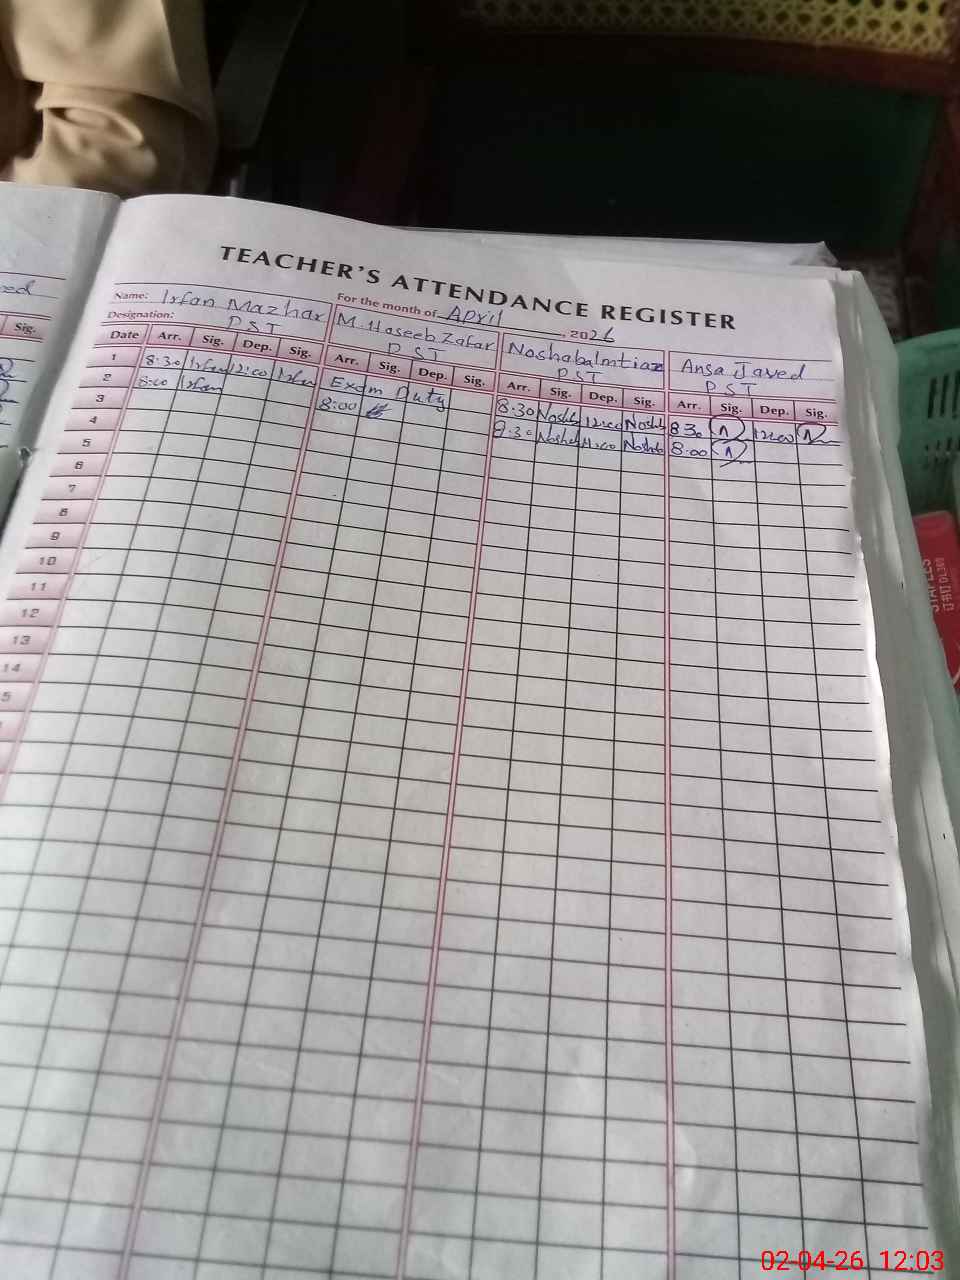 TEACHER'S ATTENDANCE REGISTER
For the month of April, 2026
Name: Irfan Mazhar M. Haseeb Zafar Noshaba Imtiaz Ansa Javed
Designation: PST PST PST PST
Date Arr. Sig. Dep. Sig. Arr. Sig. Dep. Sig. Arr. Sig. Dep. Sig. Arr. Sig. Dep. Sig.
1 8:30 Irfan 12:00 Irfan Exam Duty 8:30 Nosheb 12:00 Nosheb 8:30 12:00
2 8:00 Irfan 8:00 Nosheb Nosheb 8:00
3
4
5
6
7
8
9
10
11
12
13
14
5
Sig.
STAPLES
02-04-26 12:03